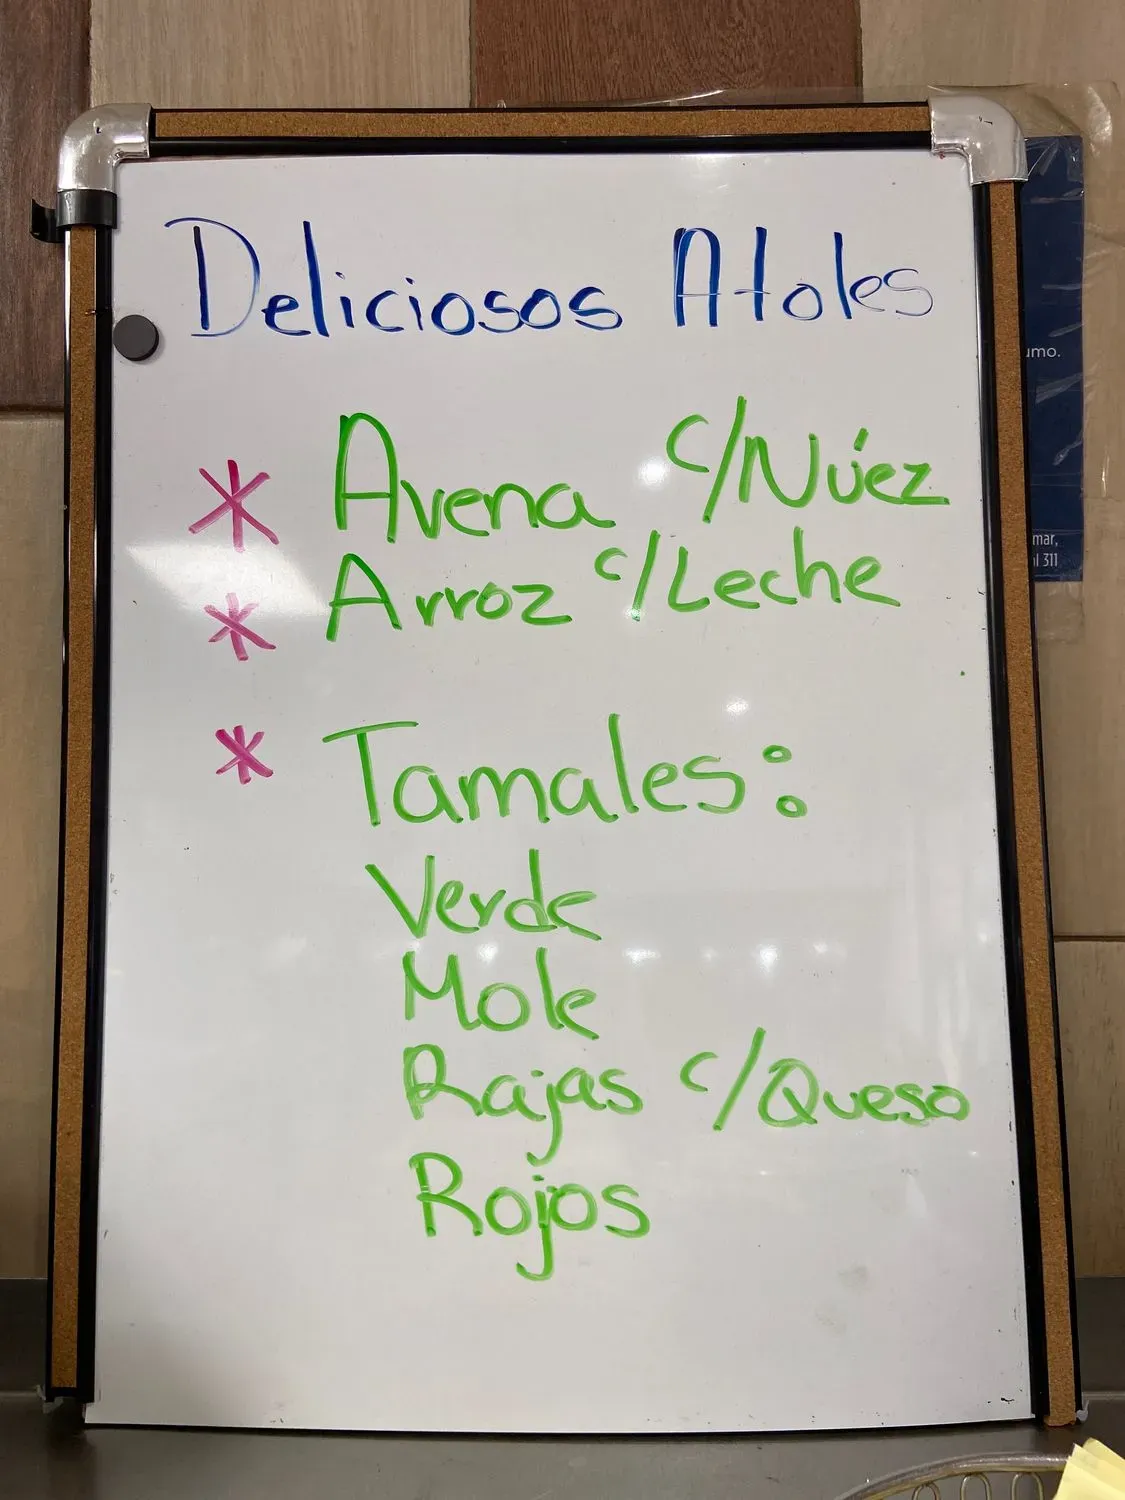 Deliciosos Atoles
* Avena c/Núez
* Arroz c/Leche
* Tamales:
Verde
Mole
Rajas c/Queso
Rojos
umo.
mar,
l 311